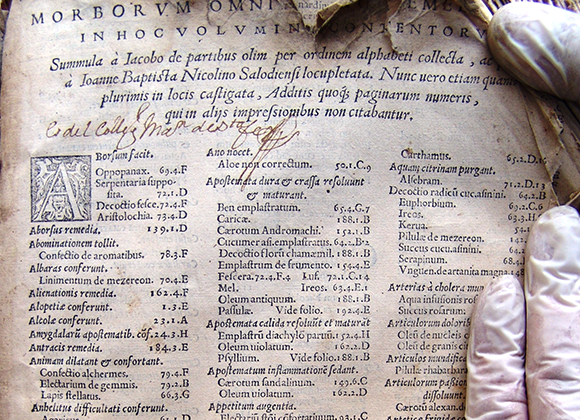 MORBORVM OMNI
IN HOC VOLVMIN CONTENTORV
Summula à Iacobo de partibus olim per ordinem alphabeti collecta, ac
à Ioanne Baptista Nicolino Salodiensi locupletata. Nunc vero etiam quam
plurimis in locis castigata, Additis quoq; paginarum numeris,
qui in alijs impressionibus non citabantur.
ABorsum facit.
Oppopanax. 69.4.F
Serpentaria supposita. 72.1.D
Decoctio fesce. 72.4.F
Aristolochia. 73.4.D
Aborsus remedia. 139.1.D
Abominationem tollit.
Confectio de aromatibus. 78.3.F
Albaras conferunt.
Linimentum de mezereon. 70.4.E
Alienationis remedia. 162.4.F
Alopetiæ conferunt. 1.3.E
Alcolæ conferunt. 23.1.A
Amygdalarũ apostematib. cõf. 24.3.H
Antracis remedia. 184.3.E
Animam dilatant & confortant.
Confectio alchermes. 79.4.F
Electarium de gemmis. 79.2.B
Lapis stellatus. 66.3.G
Anhelitus difficultati conferunt.
Ano nocet.
Aloe non correctum. 50.1.C.9
Apostemata dura & crassa resoluunt
& maturant.
Ben emplastratum. 65.4.G.7
Caricæ. 188.1.B
Cærotum Andromachi. 152.1.B
Cucumer asi. emplastratus. 64.2.B.2
Decoctio florũ chamæmil. 188.1.B
Emplastrum de frumento. 159.4.E
Fescera. 72.4.F.4 Euf. 72.1.C.14
Mel. Ireos. 63.4.E.1
Oleum antiquum. 188.1.B
Passulæ. Vide folio. 192.4.E
Apostemata calida resoluũt et maturãt
Emplastrũ diachylõ paruũ. 152.4.H
Oleum uiolatum. 162.2.D
Psyllium. Vide folio. 188.1.B
Apostematum inflammationẽ sedant.
Cærotum sandalinum. 149.6.C
Oleum uiolatum. 162.2.D
Appetitum augentia.
Carthamus. 65.2.D.16
Aquam citrinam purgant.
Alsebram. 71.2.D.13
Decoctio radicũ cuc. asinini. 64.2.B
Euphorbium. 69.2.C.6
Ireos. 63.3.H
Kerua. 54.
Pilulæ de mezereon. 142.
Succus cuc. asinini. 64.2
Serapinum. 68.4
Vnguen. de artanita magna.
Arterias à cholera mun
Aqua infusionis ros
Succus rosarum.
Articulorum dolori
Oleũ de nucleis c
Olei de granis cit
Articulos mundific